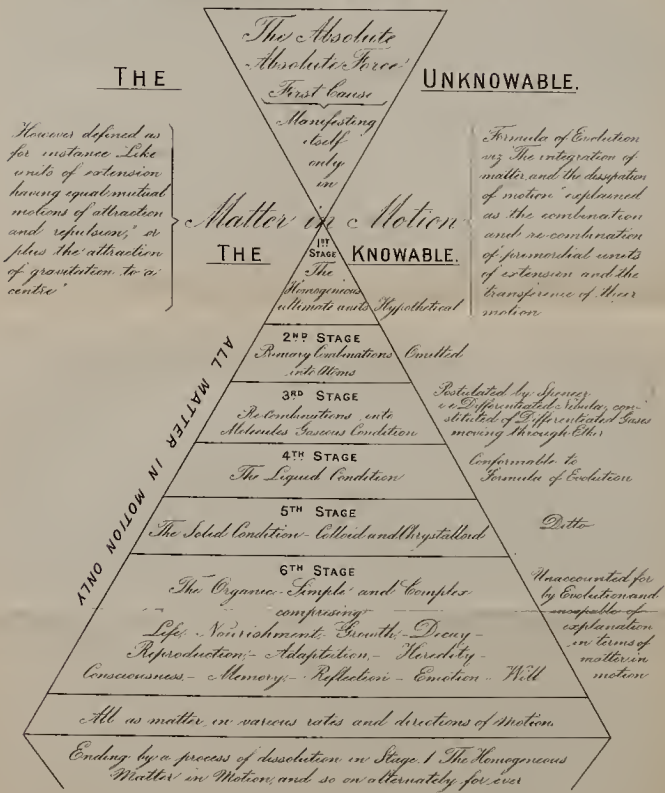 The Absolute
Absolute Force
First Cause
THE UNKNOWABLE.
Manifesting
itself
only
in
However defined as
for instance "Like
units of extension
having equal mutual
motions of attraction
and repulsion," or
plus the attraction
of gravitation to a
centre"
Formula of Evolution
viz "The integration of
matter and the dissipation
of motion" explained
as the combination
and re-combination
of primordial units
of extension and the
transference of their
motion
Matter in Motion
THE KNOWABLE.
1ST
STAGE
The
Homogeneous
ultimate units Hypothetical
2ND STAGE
Primary Combinations Omitted
into Atoms
3RD STAGE
Re-Combinations into
Molecules Gaseous Condition
Postulated by Spencer
i.e. Differentiated Nebula, con-
stituted of Differentiated Gases
moving through Ether
4TH STAGE
The Liquid Condition
Conformable to
Formula of Evolution
5TH STAGE
The Solid Condition - Colloid and Chrystalloid
Ditto
ALL MATTER IN MOTION ONLY
6TH STAGE
The Organic - Simple and Complex
comprising
Life, - Nourishment, - Growth, - Decay -
Reproduction, - Adaptation, - Heredity -
Consciousness, - Memory, - Reflection - Emotion - Will
Unaccounted for
by Evolution and
incapable of
explanation
in terms of
matter in
motion
All as matter, in various rates and directions of Motion
Ending by a process of dissolution in Stage. 1 The Homogeneous
Matter in Motion, and so on alternately for ever